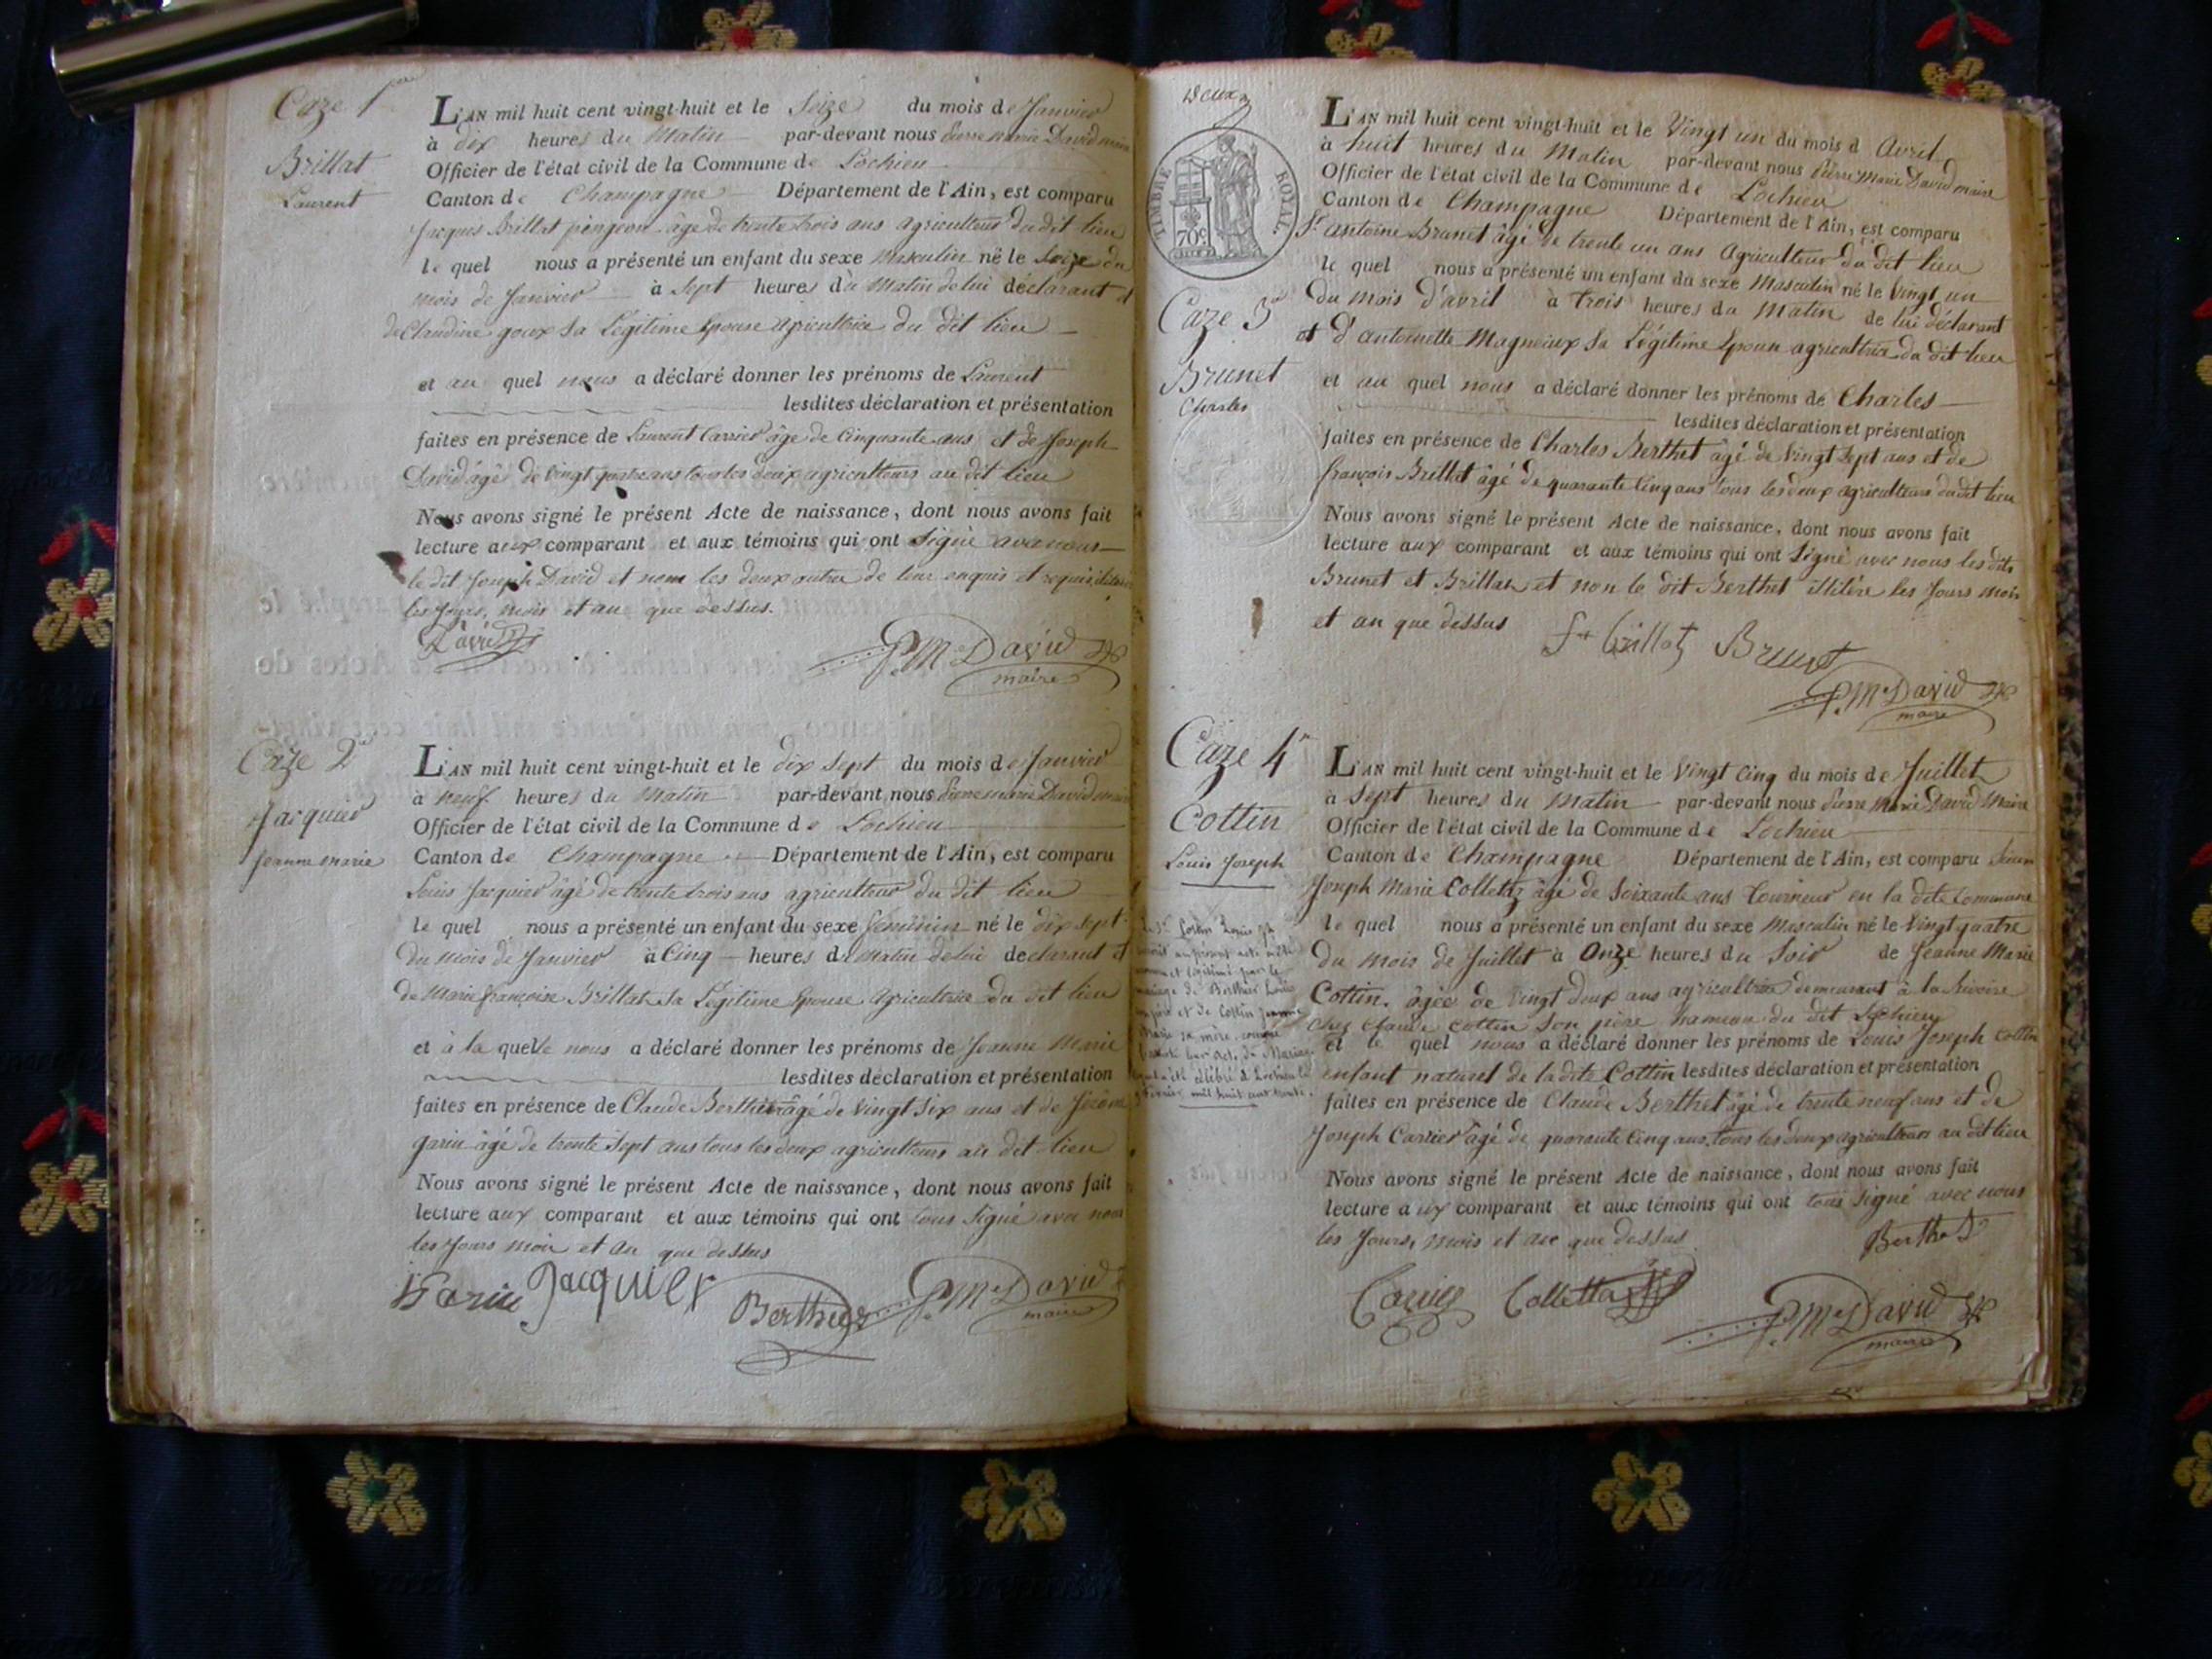 Caze 1re
Brillat
Laurent
L'AN mil huit cent vingt-huit et le Seize du mois de Janvier
à dix heures du Matin par-devant nous Pierre marie David maire
Officier de l'état civil de la Commune de Lochieu
Canton de Champagne Département de l'Ain, est comparu
Jacques Brillat pingeon âgé de trente trois ans agriculteur du dit lieu
le quel nous a présenté un enfant du sexe Masculin né le Seize du
mois de Janvier à Sept heures du Matin de lui déclarant et
de Claudine goux sa Légitime Epouse agricultrice du dit lieu
et au quel nous a déclaré donner les prénoms de Laurent
lesdites déclaration et présentation
faites en présence de Laurent Carrier âgé de Cinquante ans et de Joseph
David âgé de vingt quatre ans tous les deux agriculteurs au dit lieu
Nous avons signé le présent Acte de naissance, dont nous avons fait
lecture aux comparant et aux témoins qui ont Signé avec nous
le dit Joseph David et non les deux autres de leur enquis et requis
les Jours, mois et an que dessus.
David
P. Me David
maire
Caze 2e
Jacquier
Jeanne marie
L'AN mil huit cent vingt-huit et le dix Sept du mois de Janvier
à neuf heures du Matin par-devant nous Pierre marie David maire
Officier de l'état civil de la Commune de Lochieu
Canton de Champagne Département de l'Ain, est comparu
Louis Jacquier âgé de trente trois ans agriculteur du dit lieu
le quel nous a présenté un enfant du sexe féminin né le dix Sept
du mois de Janvier à Cinq heures du Matin de lui déclarant et
de Marie françoise Brillat sa Légitime Epouse Agricultrice du dit lieu
et à la quelle nous a déclaré donner les prénoms de Jeanne Marie
lesdites déclaration et présentation
faites en présence de Claude Berthier âgé de vingt Six ans et de Jérôme
garin âgé de trente Sept ans tous les deux agriculteurs au dit lieu
Nous avons signé le présent Acte de naissance, dont nous avons fait
lecture aux comparant et aux témoins qui ont tous Signé avec nous
les Jours mois et an que dessus
Garin Jacquier Berthier P. Me David
maire
Deux
TIMBRE ROYAL
70c
Caze 3e
Brunet
Charles
L'AN mil huit cent vingt-huit et le Vingt un du mois d Avril
à huit heures du Matin par-devant nous Pierre Marie David maire
Officier de l'état civil de la Commune de Lochieu
Canton de Champagne Département de l'Ain, est comparu
Sr antoine Brunet âgé de trente un ans Agriculteur du dit lieu
le quel nous a présenté un enfant du sexe Masculin né le Vingt un
du mois d'avril à trois heures du Matin de lui déclarant
et d'antoinette Magnieux sa Légitime Epouse agricultrice du dit lieu
et au quel nous a déclaré donner les prénoms de Charles
lesdites déclaration et présentation
faites en présence de Charles Berthet âgé de Vingt Sept ans et de
françois Brillat âgé de quarante Cinq ans tous les deux agriculteurs du dit lieu
Nous avons signé le présent Acte de naissance, dont nous avons fait
lecture aux comparant et aux témoins qui ont Signé avec nous les dits
Brunet et Brillat et non le dit Berthet illitéré les Jours mois
et an que dessus
fs Brillat Brunet
P. Me David
maire
Caze 4e
Cottin
Louis Joseph
L'AN mil huit cent vingt-huit et le Vingt Cinq du mois de Juillet
à Sept heures du Matin par-devant nous Pierre Marie David Maire
Officier de l'état civil de la Commune de Lochieu
Canton de Champagne Département de l'Ain, est comparu
Joseph Marie Collettaz âgé de Soixante ans tourneur en la dite Commune
le quel nous a présenté un enfant du sexe Masculin né le Vingt quatre
du mois de Juillet à Onze heures du Soir de Jeanne Marie
Cottin. âgée de Vingt Deux ans agricultrice demeurant à la Rivoire
chez Claude Cottin Son père hameau du dit Lochieu
et le quel nous a déclaré donner les prénoms de Louis Joseph Cottin
enfant naturel de la dite Cottin lesdites déclaration et présentation
faites en présence de Claude Berthet âgé de trente neuf ans et de
Joseph Carrier âgé de quarante Cinq ans, tous les deux agriculteurs au dit lieu
Nous avons signé le présent Acte de naissance, dont nous avons fait
lecture aux comparant et aux témoins qui ont tous Signé avec nous
les Jours, mois et an que dessus
Berthet
Carrier Colletta
P. Me David
maire
Cottin Louis Jph
au présent acte
et légitimé par le
mariage de Berthier Louis
père et de Cottin Jeanne
Marie sa mère comme
acte de Mariage
été célébré à Lochieu le
mil huit cent trente.